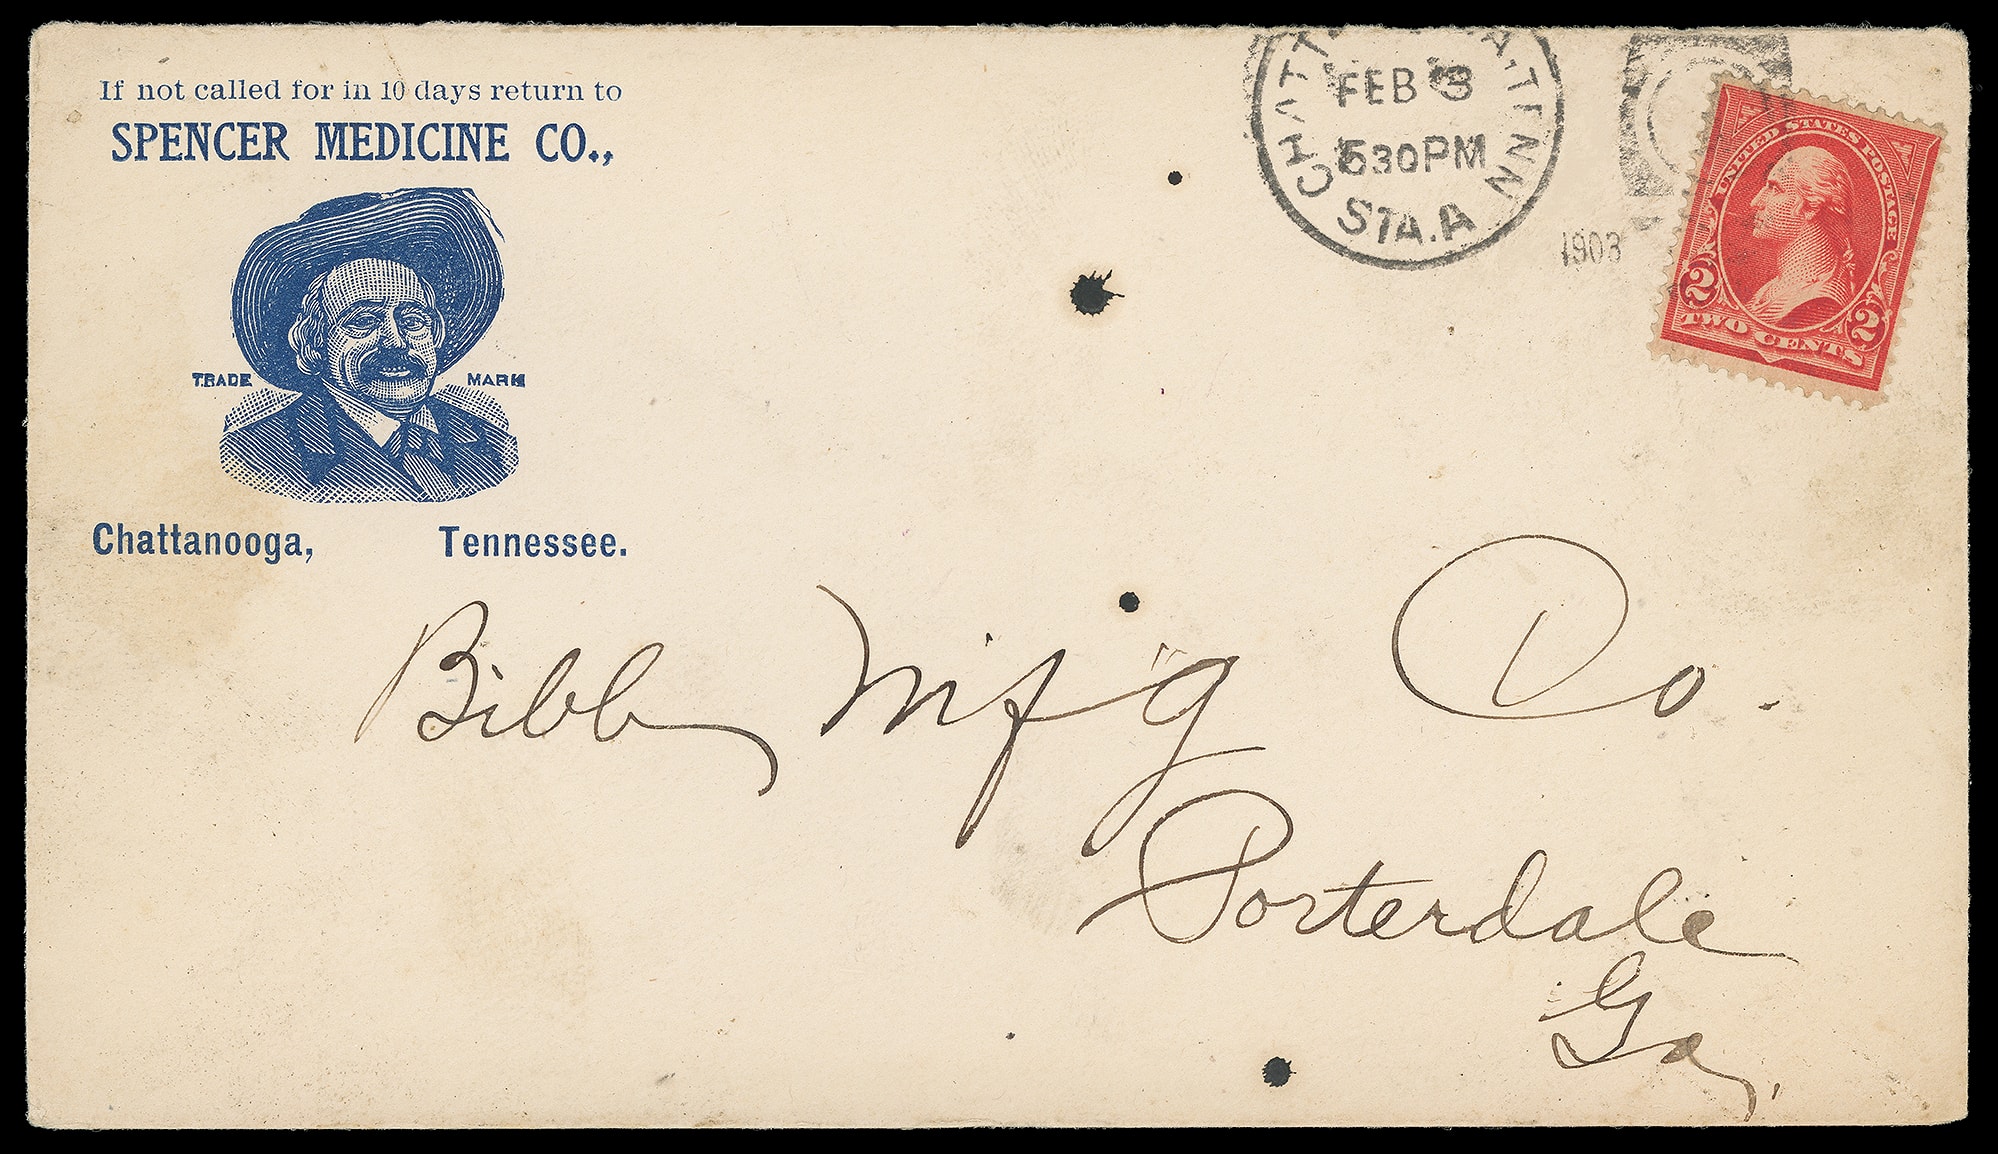 If not called for in 10 days return to
SPENCER MEDICINE CO.,
TRADE MARK
Chattanooga, Tennessee.
FEB 3
530PM
STA.A
1903
UNITED STATES POSTAGE
2 2
TWO CENTS
Bibb Mf'g Co.
Porterdale
Ga,